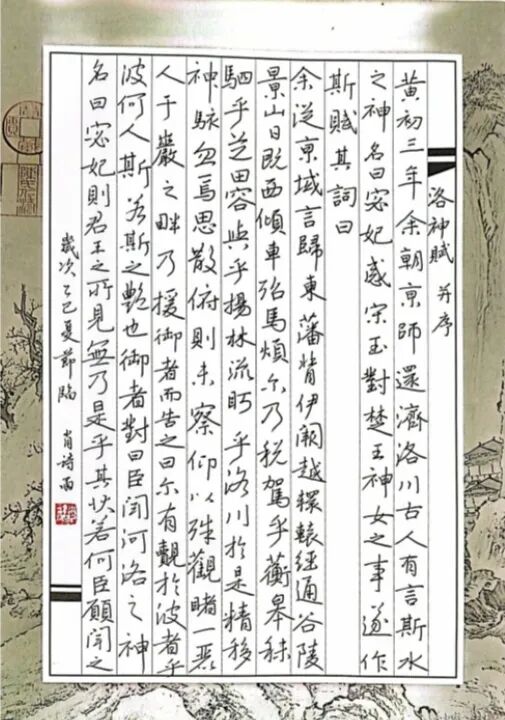 洛神賦 并序
黄初三年余朝京師還濟洛川古人有言斯水
之神名曰宓妃感宋玉對楚王神女之事遂作
斯賦其詞曰
余從京域言歸東藩背伊闕越轘轅經通谷陵
景山日既西傾車殆馬煩尔乃税駕乎蘅皋秣
駟乎芝田容與乎楊林流眄乎洛川於是精移
神駭忽焉思散俯則未察仰以殊觀睹一麗
人于巖之畔乃援御者而告之曰尔有覿於彼者乎
彼何人斯若斯之艷也御者對曰臣聞河洛之神
名曰宓妃則君王之所見無乃是乎其狀若何臣願聞之
歲次乙巳夏節臨 肖詩雨